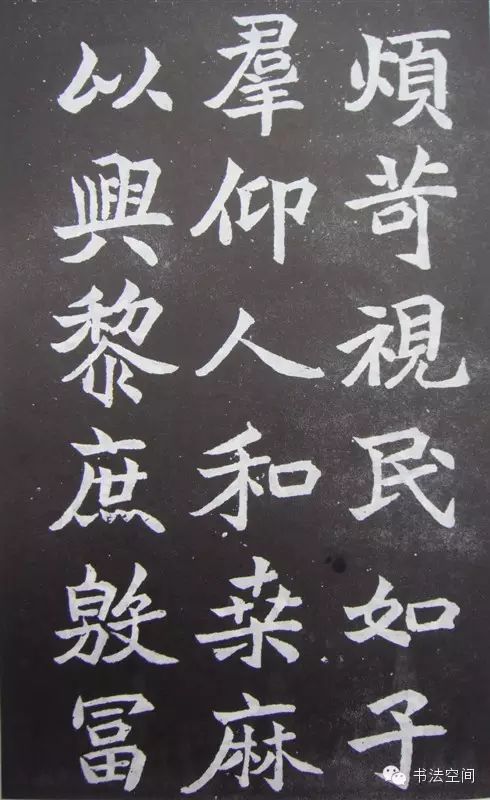 煩苛視民如子
羣仰人和桒麻
以興黎庶殷冨
书法空间